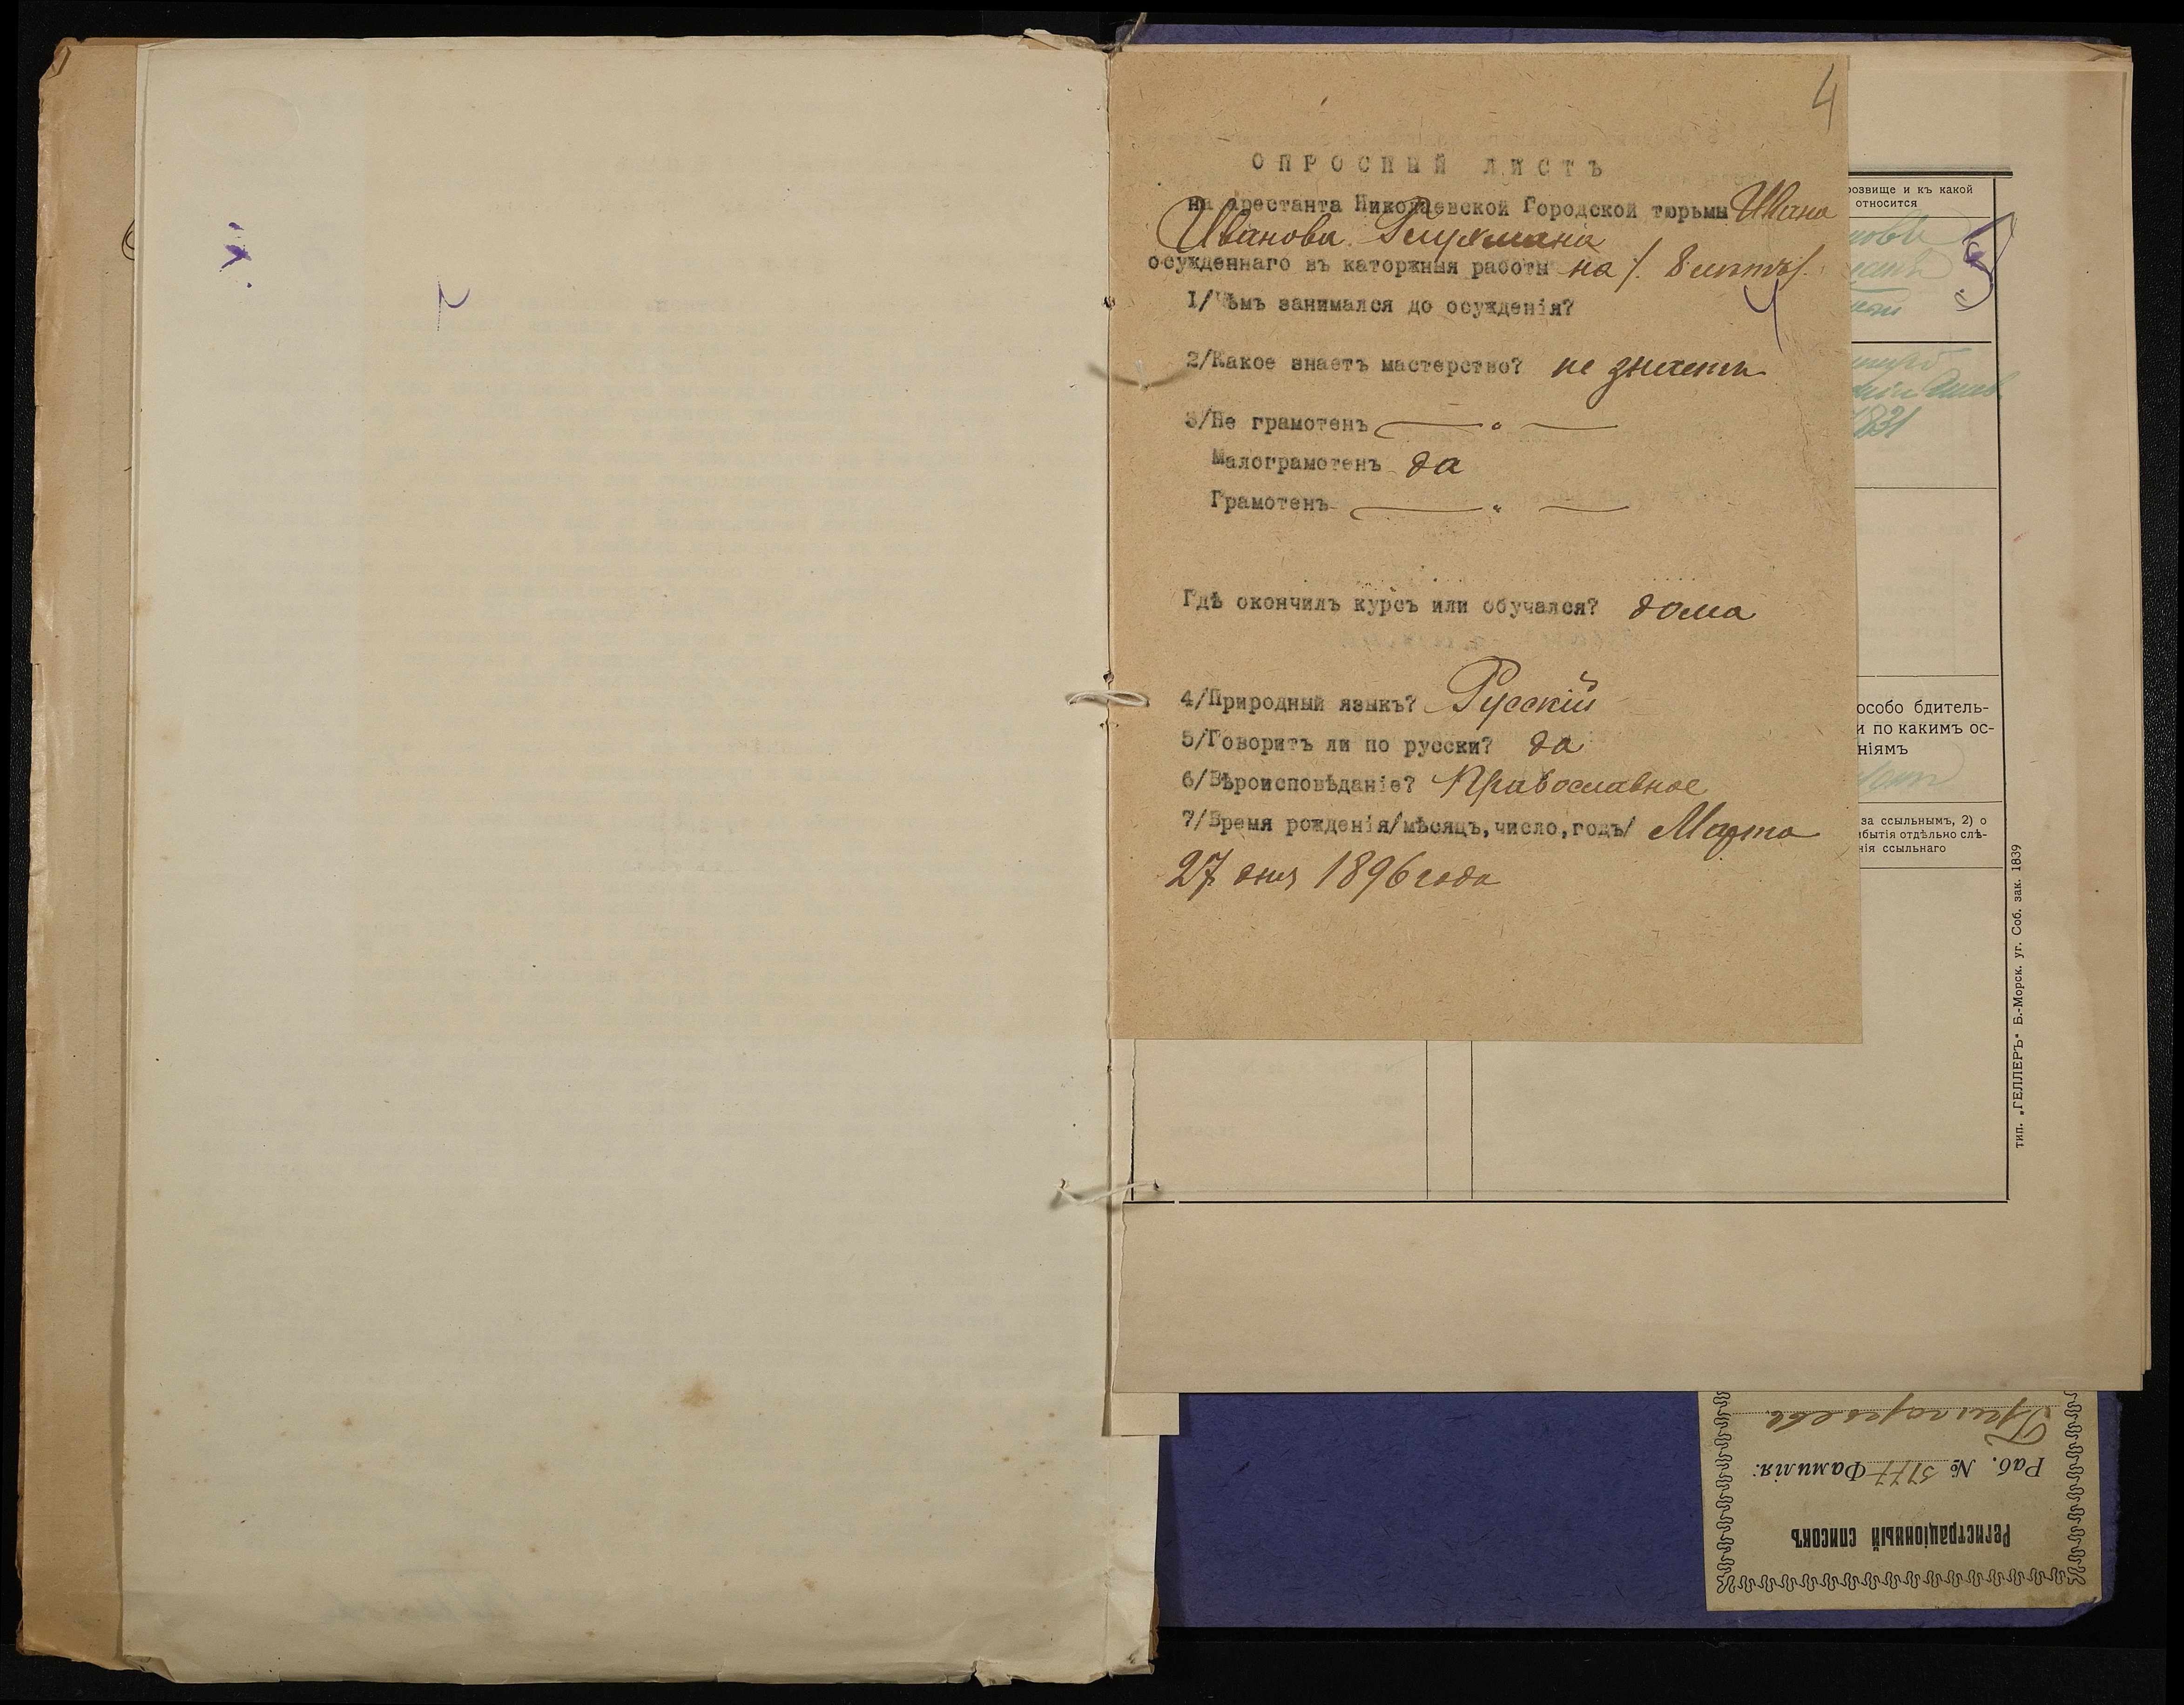 4
ОПРОСНЫЙ ЛИСТЪ
на арестанта Николаевской Городской тюрьмы Ивана
Иванова Глухмана
осужденнаго въ каторжныя работы на / 8 летъ/.
1/Чѣмъ занимался до осужденія?
2/Какое знаетъ мастерство? не знаетъ
3/Не грамотенъ — " —
Малограмотенъ да
Грамотенъ — " —
Гдѣ окончилъ курсъ или обучался? дома
4/Природный языкъ? Русскій
5/Говоритъ ли по русски? да
6/Вѣроисповѣданіе? Православное
7/Время рожденія/мѣсяцъ,число,годъ/ Марта
27 дня 1896 года
розвище и къ какой
относится
1831
особо бдитель-
и по какимъ ос-
ніямъ
за ссыльнымъ, 2) о
бытія отдѣльно слѣ-
нія ссыльнаго
тип. „ГЕЛЛЕРЪ" Б.-Морск. уг. Соб. зак. 1839
Регистраціонный списокъ
Раб. № 5177 Фамилія:
Григорьевъ